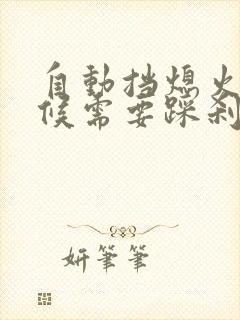 自動挡熄火
候需要踩刹
妍筆筆